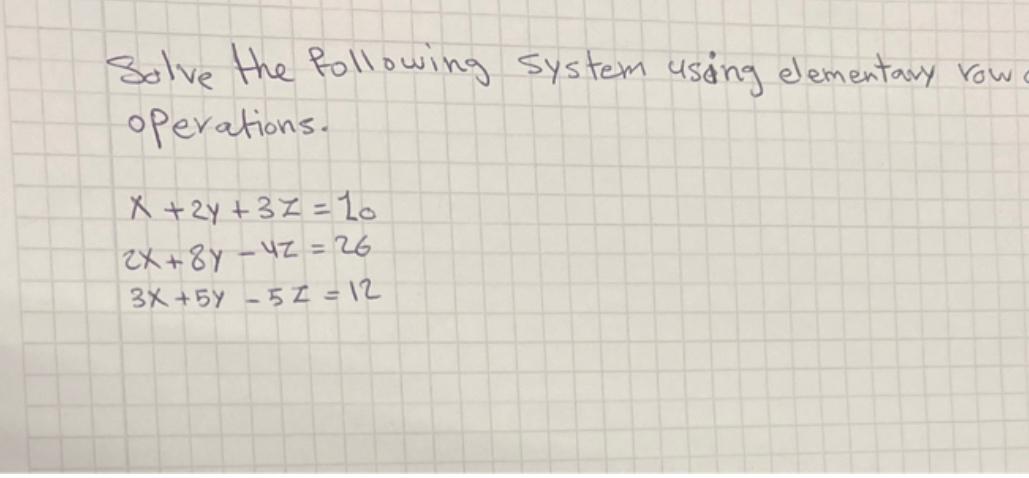 Solve the following system using elementary row
operations.
x + 2y + 3z = 10
2x + 8y - 4z = 26
3x + 5y - 5z = 12